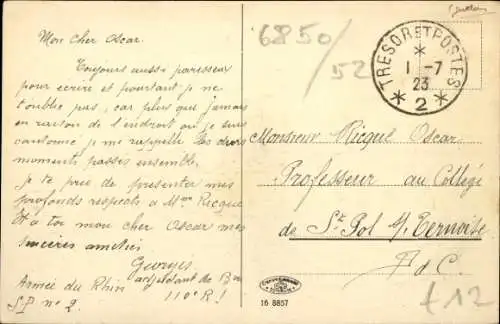 Mon cher Oscar.
Toujours aussi paresseux
pour écrire et pourtant je ne
t'oublie pas, car plus que jamais
en raison de l'endroit où je suis
cantonné je me rappelle les doux
moments passés ensemble.
Je te prie de présenter mes
profonds respects à Mme Ricque
et à toi mon cher Oscar mes
sincères amitiés
Georges
adjudant de Bon
110e R.I
Armée du Rhin
S.P. no 2.
6850/52
TRESOR ET POSTES
*
1 -7
23
* 2 *
Monsieur Ricque Oscar
Professeur au Collège
de St Pol s/ Ternoise
P d C.
16 8857
£12